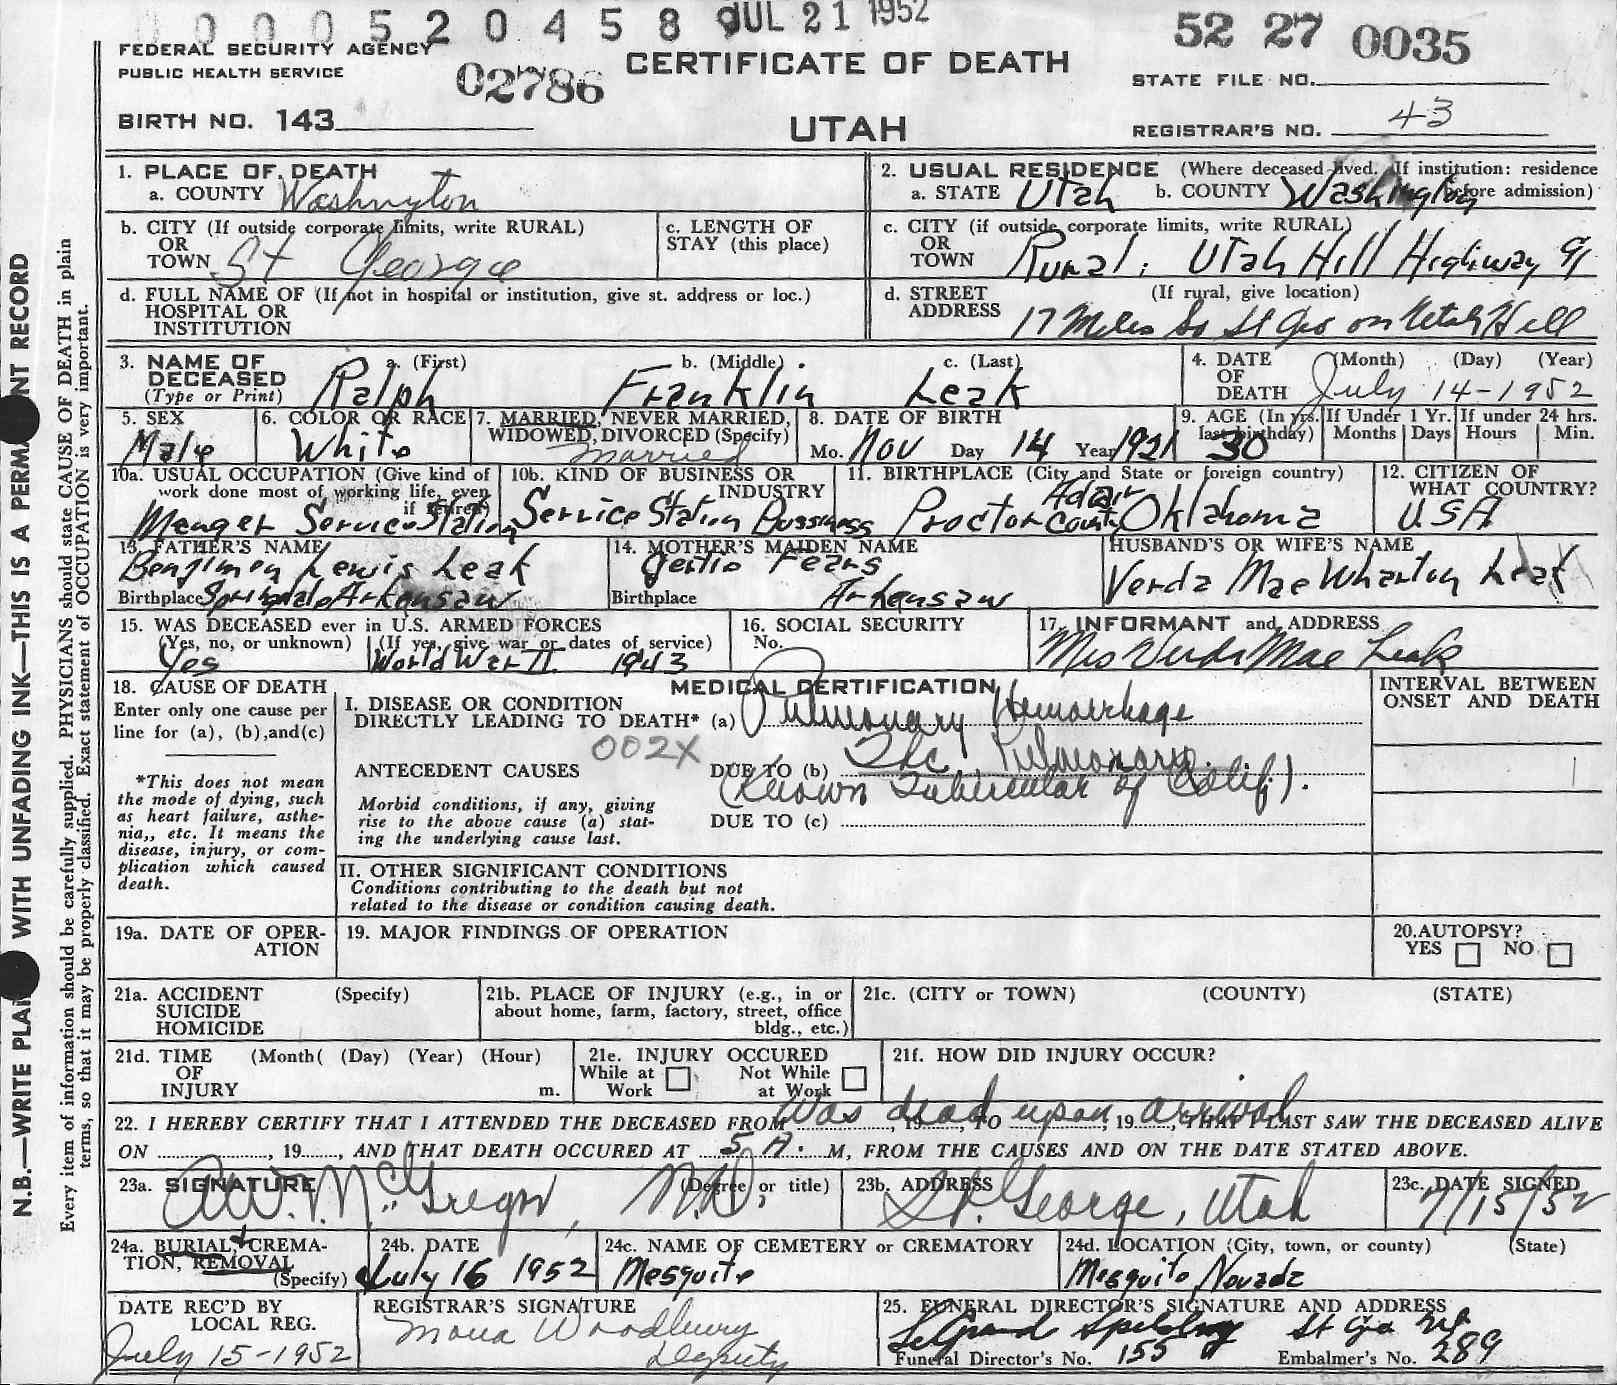 0 0 0 0 5 2 0 4 5 8 JUL 21 1952
52 27 0035
FEDERAL SECURITY AGENCY
PUBLIC HEALTH SERVICE
02786
CERTIFICATE OF DEATH
STATE FILE NO.
BIRTH NO. 143
UTAH
REGISTRAR'S NO. 43
N.B.—WRITE PLAI WITH UNFADING INK—THIS IS A PERMA NT RECORD
Every item of information should be carefully supplied. PHYSICIANS should state CAUSE OF DEATH in plain
terms, so that it may be properly classified. Exact statement of OCCUPATION is very important.
1. PLACE OF DEATH
a. COUNTY Washington
2. USUAL RESIDENCE (Where deceased lived. If institution: residence
a. STATE Utah b. COUNTY Washington before admission)
b. CITY (If outside corporate limits, write RURAL)
OR
TOWN St George
c. LENGTH OF
STAY (this place)
c. CITY (if outside corporate limits, write RURAL)
OR
TOWN Rural. Utah Hill Highway 91
d. FULL NAME OF (If not in hospital or institution, give st. address or loc.)
HOSPITAL OR
INSTITUTION
d. STREET (If rural, give location)
ADDRESS 17 Miles So St Geo on Utah Hill
3. NAME OF DECEASED
(Type or Print)
a. (First) b. (Middle) c. (Last)
Ralph Franklin Leak
4. DATE OF DEATH (Month) (Day) (Year)
July 14-1952
5. SEX
Male
6. COLOR OR RACE
White
7. MARRIED, NEVER MARRIED,
WIDOWED, DIVORCED (Specify)
Married
8. DATE OF BIRTH
Mo. Nov Day 14 Year 1921
9. AGE (In yrs. last birthday) 30
If Under 1 Yr. Months Days
If under 24 hrs. Hours Min.
10a. USUAL OCCUPATION (Give kind of
work done most of working life, even
if retired)
Manger Service Station
10b. KIND OF BUSINESS OR
INDUSTRY
Service Station Bussiness
11. BIRTHPLACE (City and State or foreign country)
Proctor Adair County Oklahoma
12. CITIZEN OF
WHAT COUNTRY?
USA
13. FATHER'S NAME
Benjimen Lewis Leak
Birthplace Springdale Arkansaw
14. MOTHER'S MAIDEN NAME
Fears
Birthplace Arkansaw
HUSBAND'S OR WIFE'S NAME
Verda Mae Wharton Leak
15. WAS DECEASED ever in U.S. ARMED FORCES
(Yes, no, or unknown) (If yes, give war or dates of service)
Yes World War II 1943
16. SOCIAL SECURITY
No.
17. INFORMANT and ADDRESS
Mrs Verda Mae Leak
18. CAUSE OF DEATH
Enter only one cause per
line for (a), (b), and (c)
*This does not mean
the mode of dying, such
as heart failure, asthe-
nia,, etc. It means the
disease, injury, or com-
plication which caused
death.
MEDICAL CERTIFICATION
I. DISEASE OR CONDITION
DIRECTLY LEADING TO DEATH* (a) Pulmonary Hemorrhage
002X
ANTECEDENT CAUSES DUE TO (b) Tbc Pulmonary
(Known Tubercular of Calif).
Morbid conditions, if any, giving
rise to the above cause (a) stat-
ing the underlying cause last.
DUE TO (c)
INTERVAL BETWEEN
ONSET AND DEATH
II. OTHER SIGNIFICANT CONDITIONS
Conditions contributing to the death but not
related to the disease or condition causing death.
19a. DATE OF OPER-
ATION
19. MAJOR FINDINGS OF OPERATION
20. AUTOPSY?
YES NO
21a. ACCIDENT (Specify)
SUICIDE
HOMICIDE
21b. PLACE OF INJURY (e.g., in or
about home, farm, factory, street, office
bldg., etc.)
21c. (CITY or TOWN) (COUNTY) (STATE)
21d. TIME (Month( (Day) (Year) (Hour)
OF
INJURY m.
21e. INJURY OCCURED
While at Work Not While at Work
21f. HOW DID INJURY OCCUR?
was dead upon arrival
22. I HEREBY CERTIFY THAT I ATTENDED THE DECEASED FROM , 19 , TO , 19 , THAT I LAST SAW THE DECEASED ALIVE
ON , 19 , AND THAT DEATH OCCURED AT 5 A. M, FROM THE CAUSES AND ON THE DATE STATED ABOVE.
23a. SIGNATURE (Degree or title)
A.W. McGregor, M.D.
23b. ADDRESS
St. George, Utah
23c. DATE SIGNED
7/15/52
24a. BURIAL, + CREMA-
TION, REMOVAL
(Specify)
24b. DATE
July 16 1952
24c. NAME OF CEMETERY or CREMATORY
Mesquite
24d. LOCATION (City, town, or county) (State)
Mesquite Nevada
DATE REC'D BY
LOCAL REG.
July 15-1952
REGISTRAR'S SIGNATURE
Mona Woodbury
Deputy
25. FUNERAL DIRECTOR'S SIGNATURE AND ADDRESS
LeGrand Spilsbury St Geo
Funeral Director's No. 155 Embalmer's No. 289